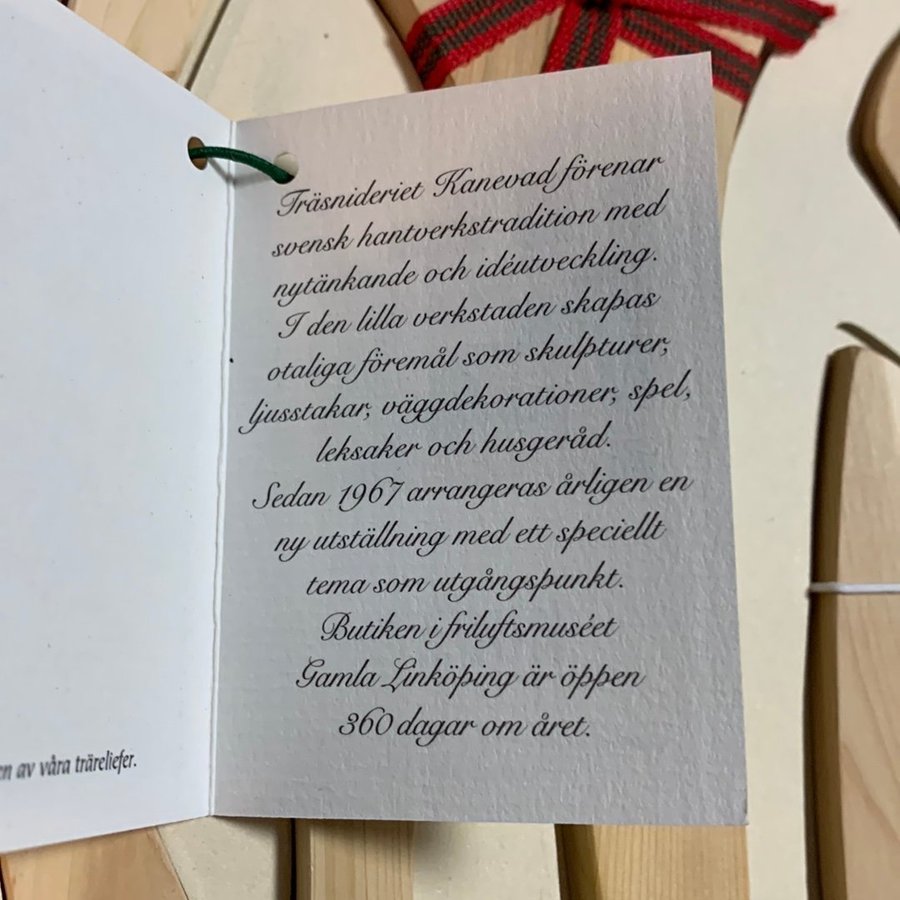 Träsnideriet Kanevad förenar
svensk hantverkstradition med
nytänkande och idéutveckling.
I den lilla verkstaden skapas
otaliga föremål som skulpturer,
ljusstakar, väggdekorationer, spel,
leksaker och husgeråd.
Sedan 1967 arrangeras årligen en
ny utställning med ett speciellt
tema som utgångspunkt.
Butiken i friluftsmuséet
Gamla Linköping är öppen
360 dagar om året.
av våra träreliefer.